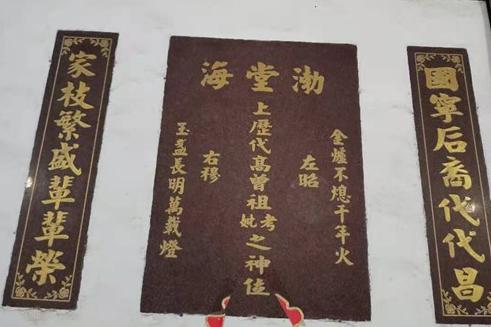 國寧后裔代代昌
渤堂海
金爐不熄千年火
左昭
上歷代高曾祖考妣之神位
右穆
玉盞長明萬載燈
家枝繁盛輩輩榮